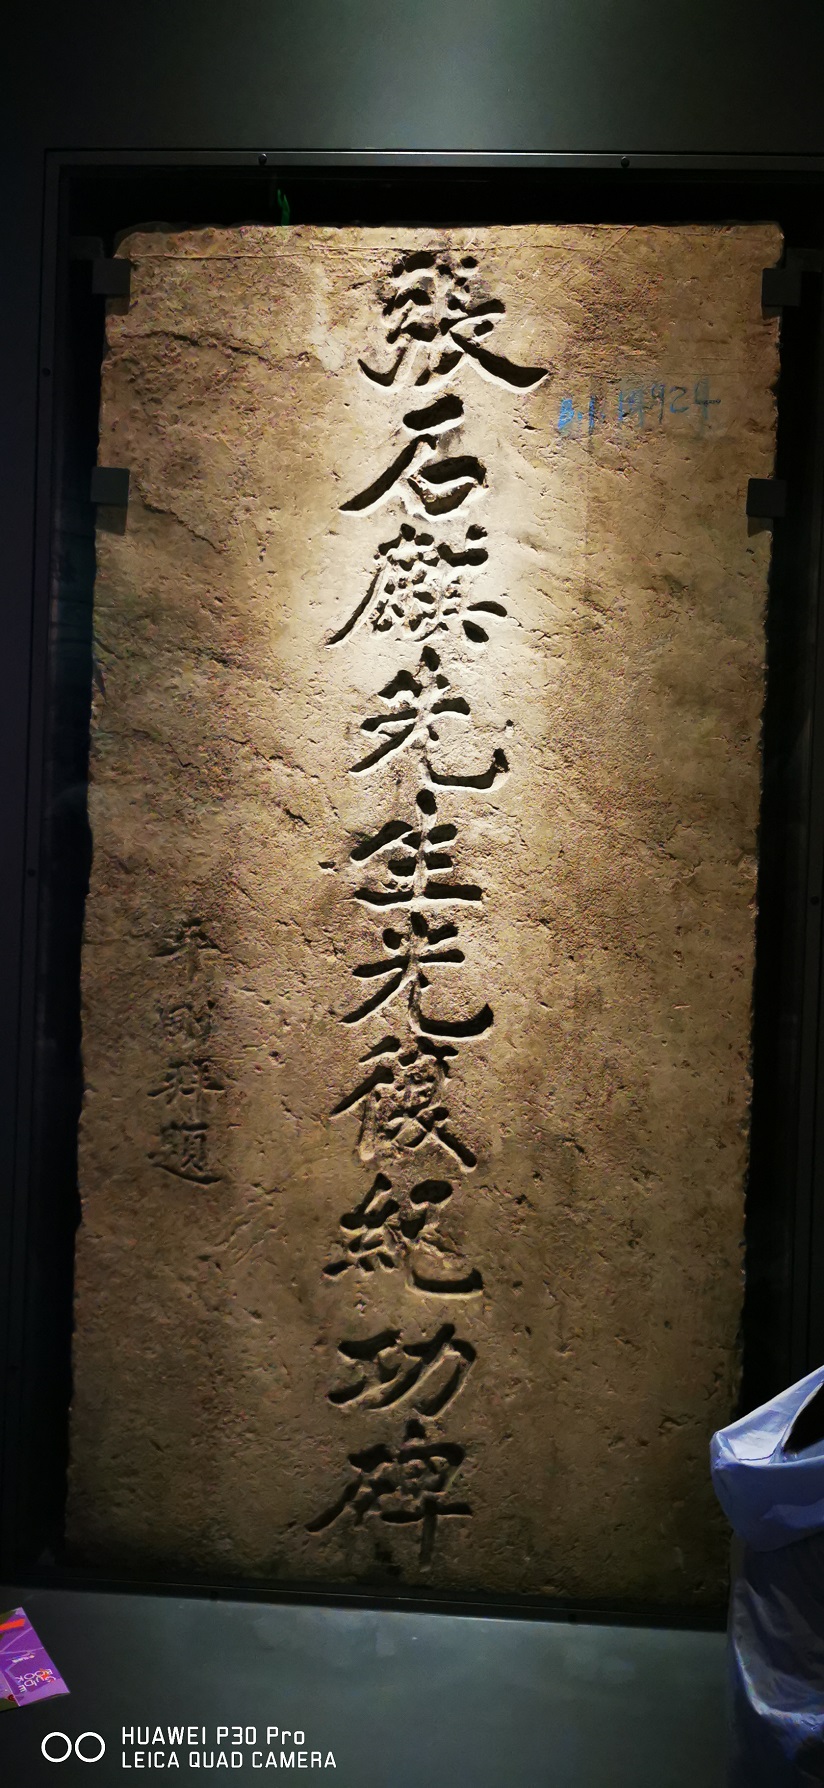 張石麒先生光復紀功碑
于剛拜題
HUAWEI P30 Pro
LEICA QUAD CAMERA